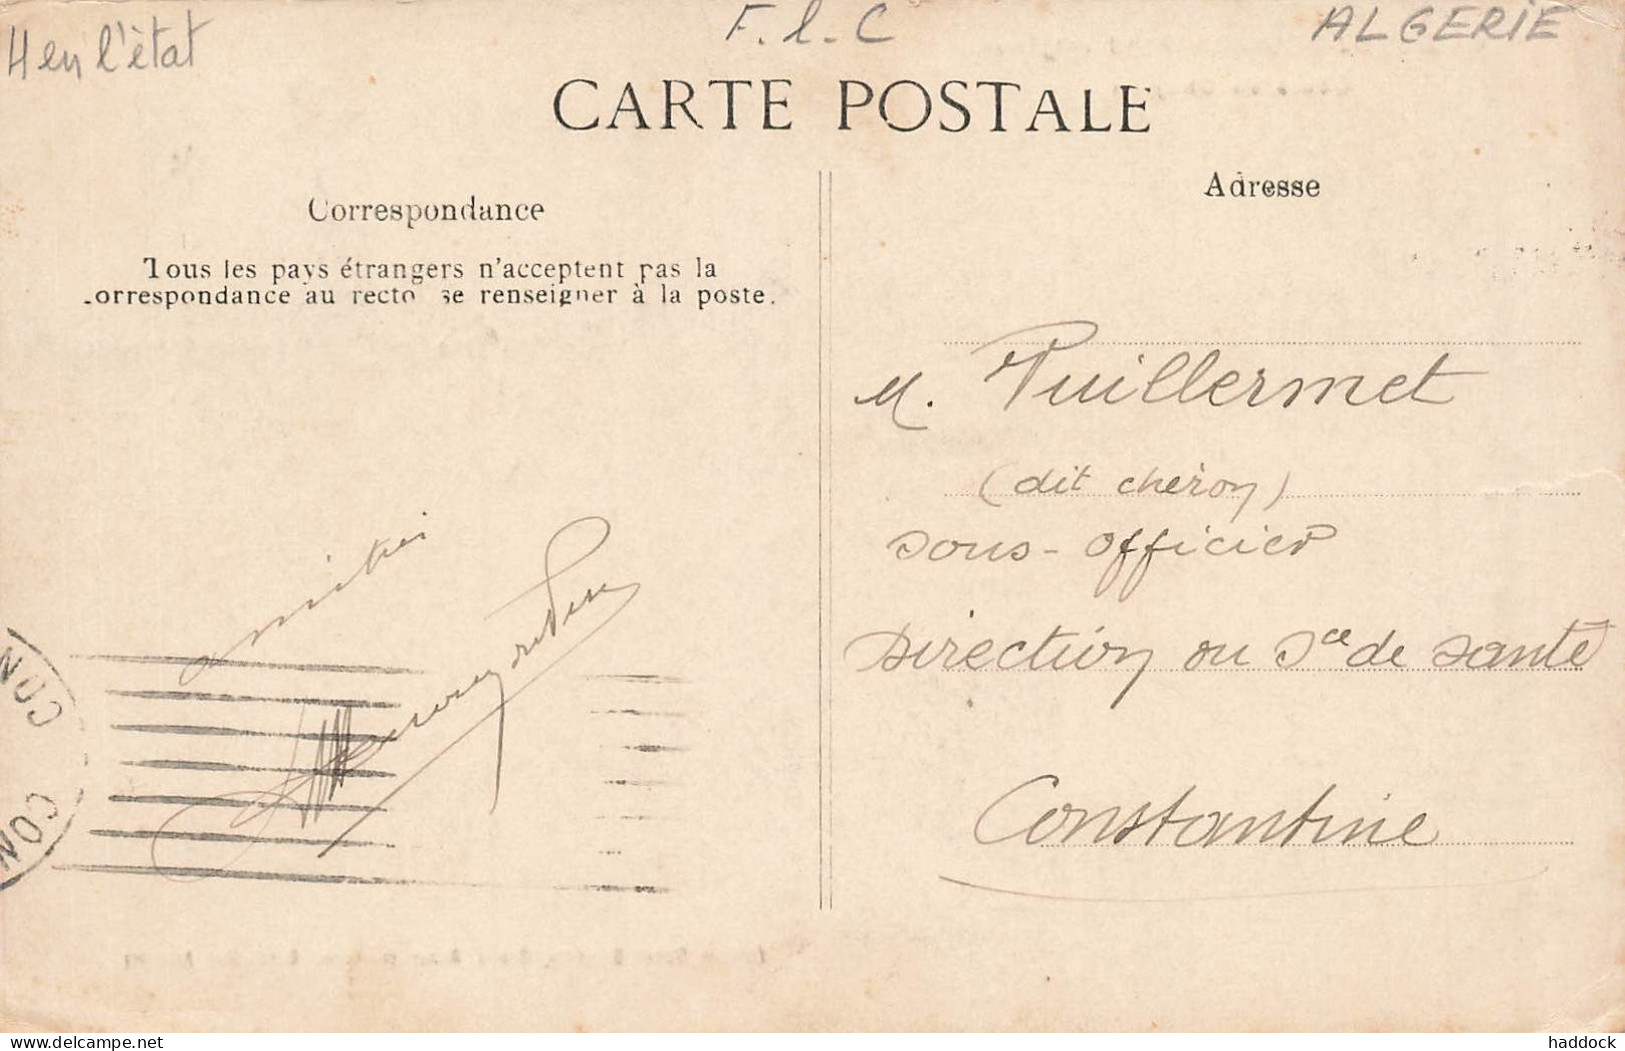 4 en l'état
F.l.C
ALGERIE
CARTE POSTALE
Correspondance
Tous les pays étrangers n'acceptent pas la
correspondance au recto se renseigner à la poste.
Adresse
M. Puillermet
(dit chéron)
sous-officier
Direction du Sce de Santé
Constantine
amitiés
CON
CON
www.delcampe.net
haddock